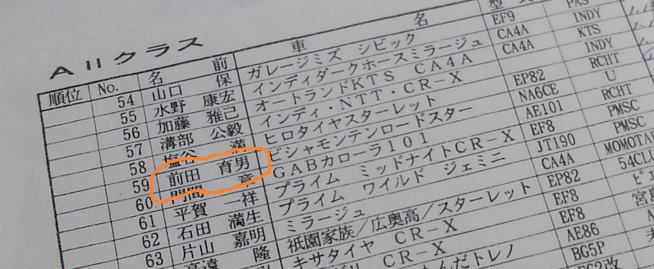 AⅡクラス
順位 No. 名前 車名
54 山口 保 ガレージミズ シビック EF9
55 水野 康宏 インディダークホースミラージュ CA4A INDY
56 加藤 雅己 オートランドKTS CA4A CA4A KTS
57 溝部 公毅 インディ・NTT・CR-X INDY
58 塩谷 満 ヒロタイヤスターレット EP82 RCHT
59 前田 育男 ビシャモンテンロードスター NA6CE U
60 GABカローラ101 AE101 RCHT
61 平賀 一祥 プライム ミッドナイトCR-X EF8 PMSC
62 石田 満生 プライム ワイルド ジェミニ JT190 PMSC
63 片山 嘉明 ミラージュ CA4A MOMOTAR
隆 祇園家族/広奥高/スターレット EP82 54CLU
キサタヤ CR-X EF8
んだトレノ AE86
BG5P